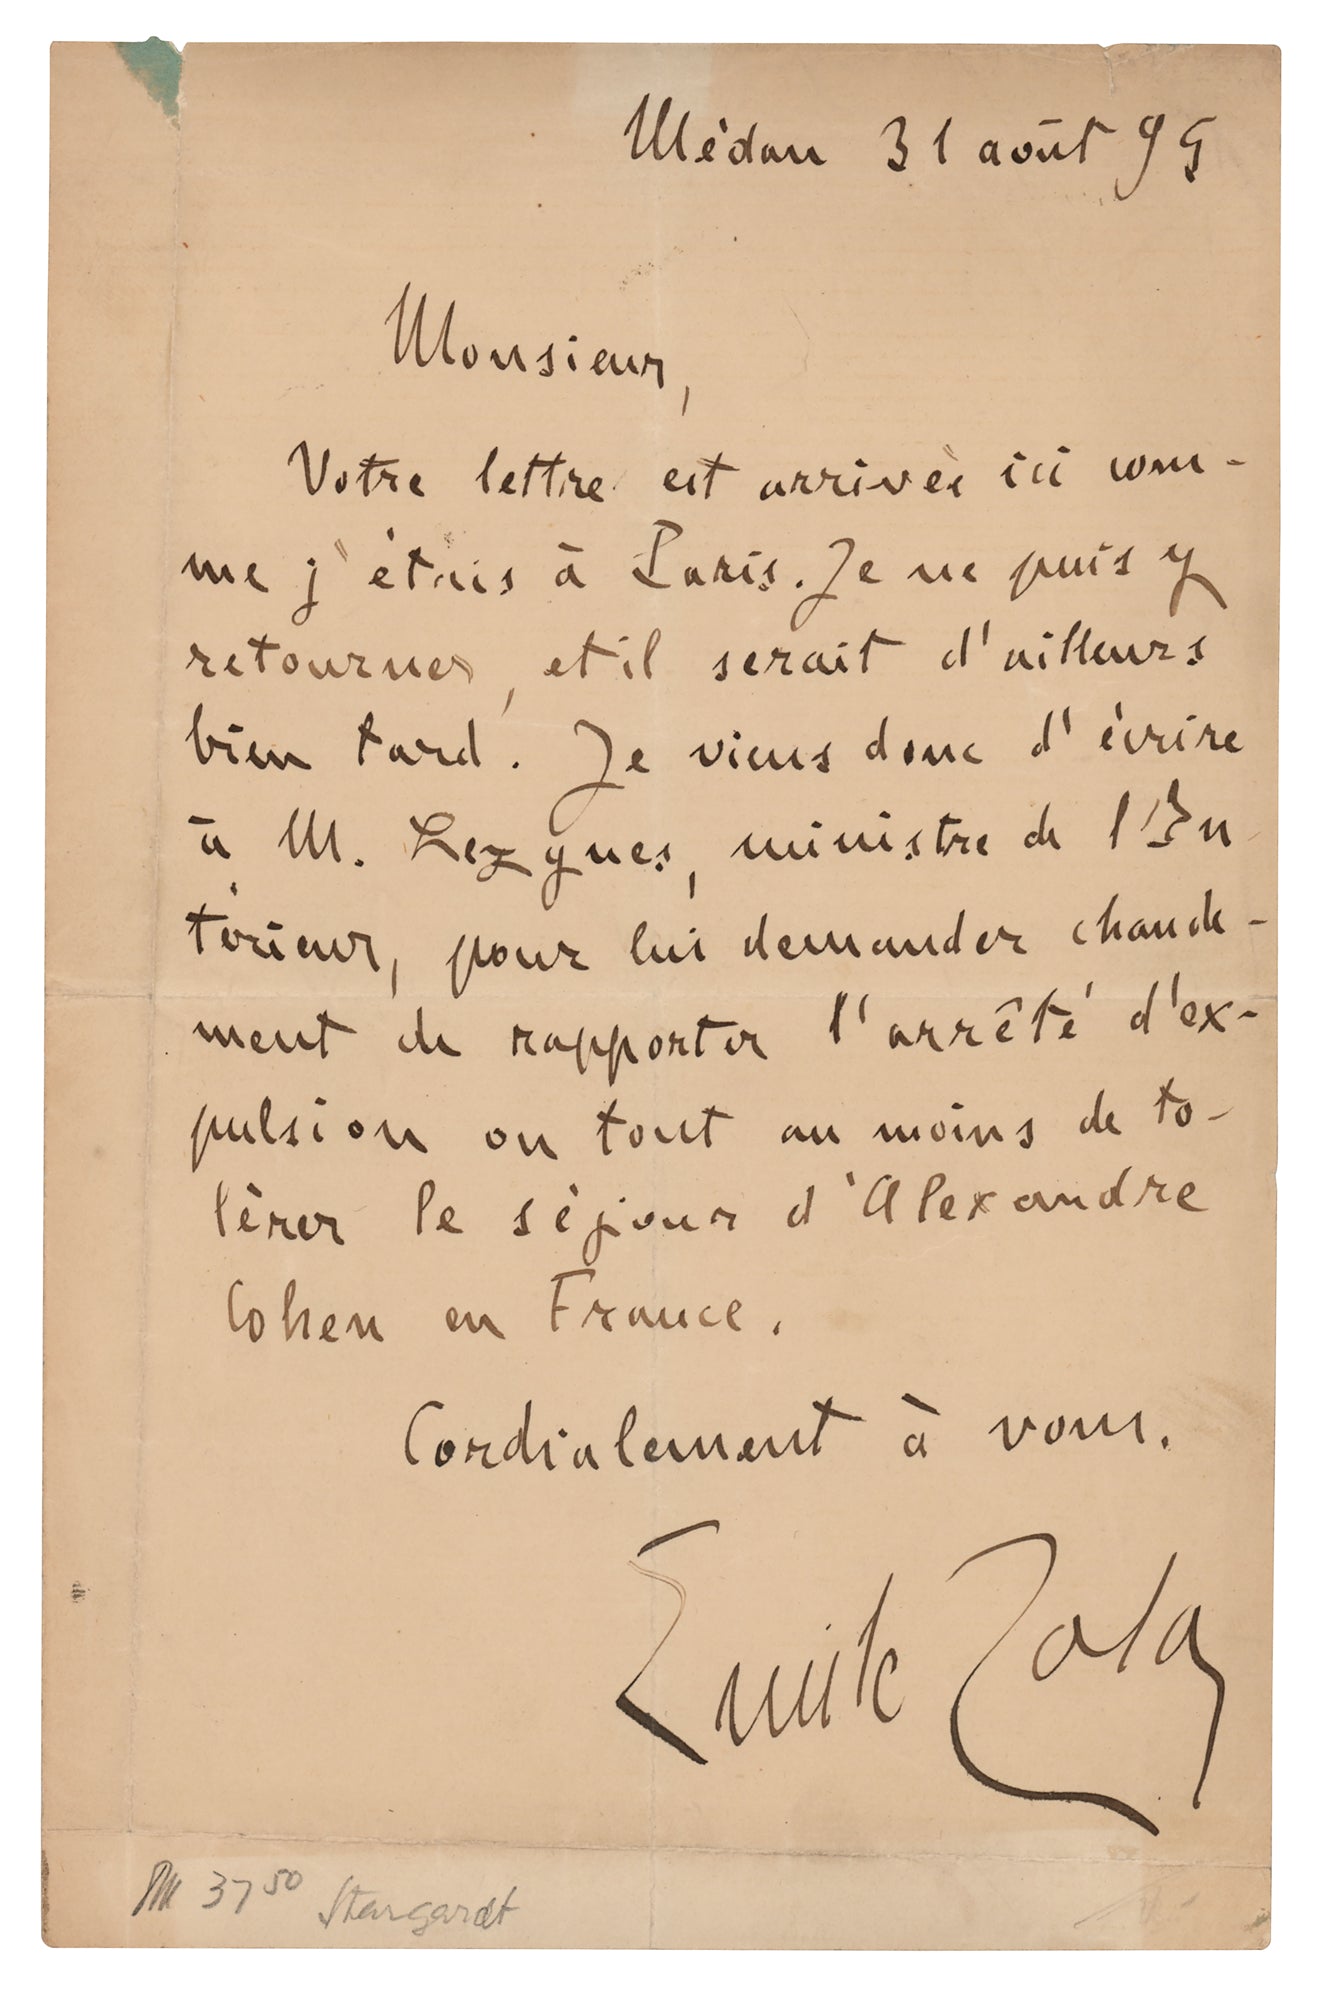 Médan 31 août 95
Monsieur,
Votre lettre est arrivée ici com-
me j'étais à Paris. Je ne puis y
retourner, et il serait d'ailleurs
bien tard. Je viens donc d'écrire
à M. Leygues, ministre de l'In
térieur, pour lui demander chaude-
ment de rapporter l'arrêté d'ex-
pulsion ou tout au moins de to-
lérer le séjour d'Alexandre
Cohen en France.
Cordialement à vous.
Emile Zola
M 37 50 Stargardt